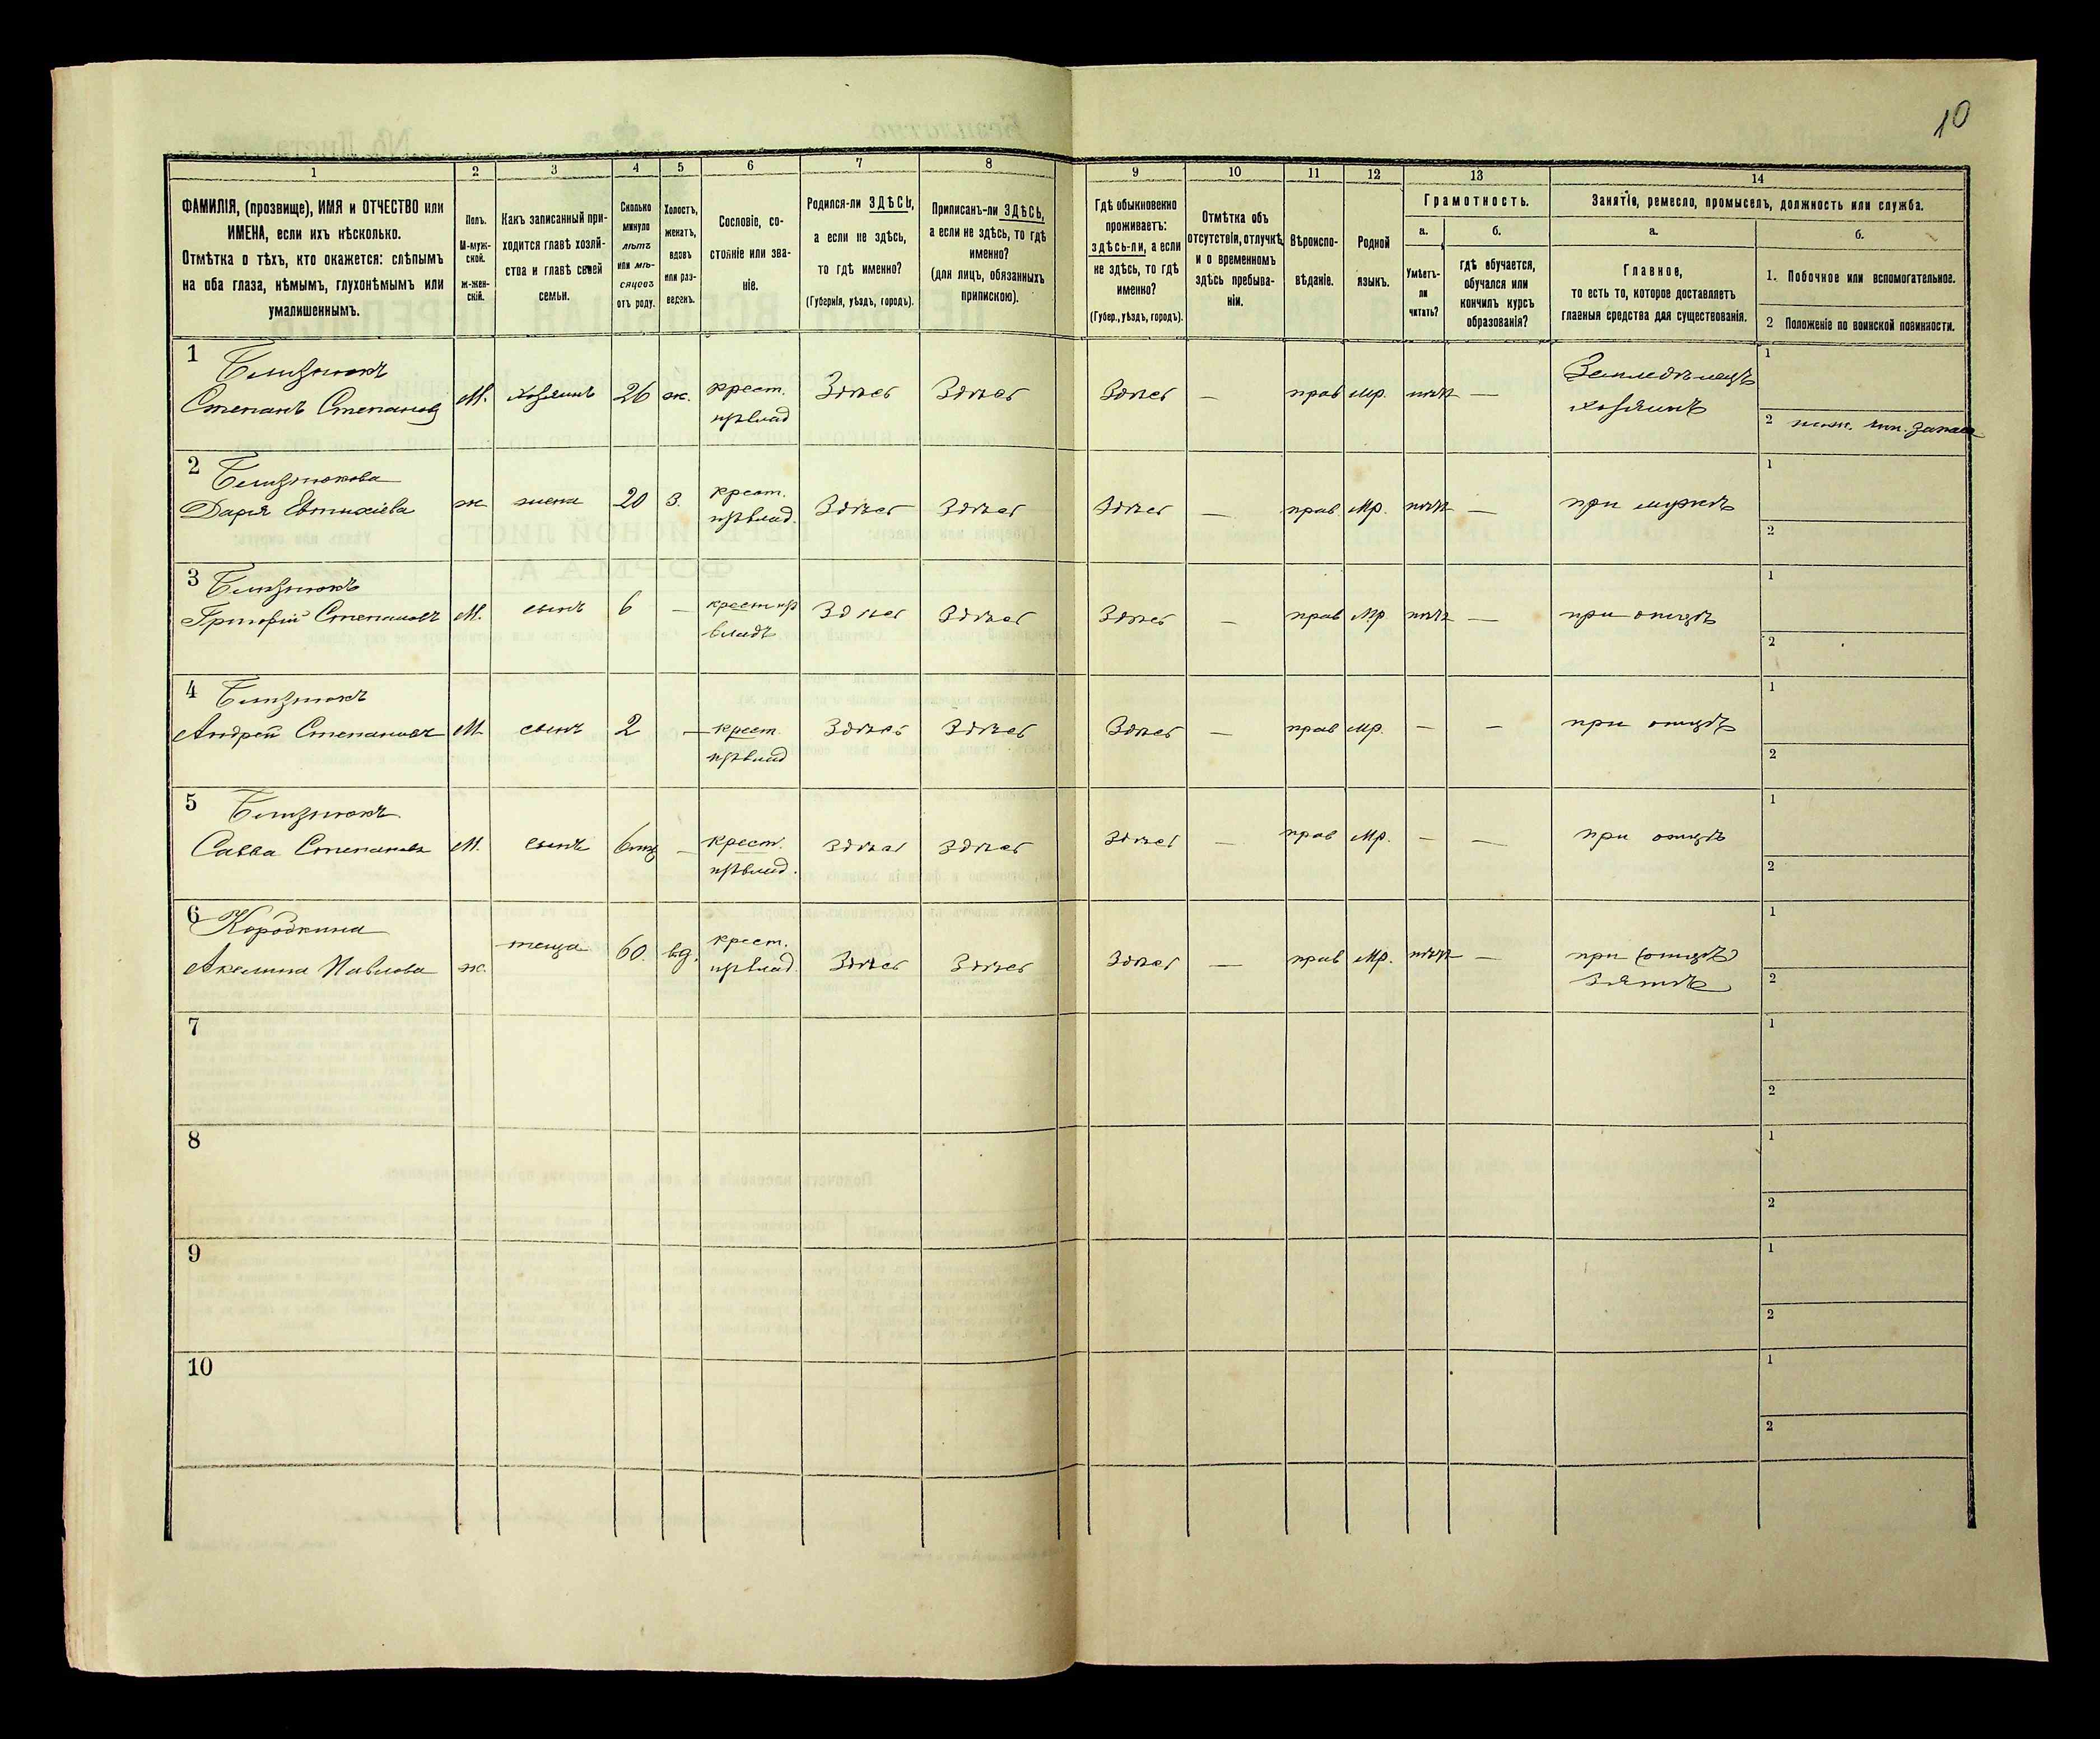 10
1 2 3 4 5 6 7 8 9 10 11 12 13 14
ФАМИЛІЯ, (прозвище), ИМЯ и ОТЧЕСТВО или
ИМЕНА, если ихъ нѣсколько.
Отмѣтка о тѣхъ, кто окажется: слѣпымъ
на оба глаза, нѣмымъ, глухонѣмымъ или
умалишеннымъ.
Полъ.
М-муж-
ской.
Ж-жен-
скій.
Какъ записанный при-
ходится главѣ хозяй-
ства и главѣ своей
семьи.
Сколько
минуло
лѣтъ
или мѣ-
сяцевъ
отъ роду.
Холостъ,
женатъ,
вдовъ
или раз-
веденъ.
Сословіе, со-
стояніе или зва-
ніе.
Родился-ли ЗДѢСЬ,
а если не здѣсь,
то гдѣ именно?
(Губернія, уѣздъ, городъ).
Приписанъ-ли ЗДѢСЬ,
а если не здѣсь, то гдѣ
именно?
(для лицъ, обязанныхъ
припискою).
Гдѣ обыкновенно
проживаетъ:
здѣсь-ли, а если
не здѣсь, то гдѣ
именно?
(Губер., уѣздъ, городъ).
Отмѣтка объ
отсутствіи, отлучкѣ
и о временномъ
здѣсь пребыва-
ніи.
Вѣроиспо-
вѣданіе.
Родной
языкъ.
Грамотность.
а.
Умѣетъ-
ли
читать?
б.
гдѣ обучается,
обучался или
кончилъ курсъ
образованія?
Занятіе, ремесло, промыселъ, должность или служба.
а.
Главное,
то есть то, которое доставляетъ
главныя средства для существованія.
б.
1. Побочное или вспомогательное.
2 Положеніе по воинской повинности.
1 Близнюкъ
Степанъ Степановъ М. хозяинъ 26 ж. крест. Здѣсь Здѣсь Здѣсь — прав мр. нѣтъ — Земледѣлецъ
хозяинъ
1
2 запаса
2 Близнюкова
Дарья Евтихіева ж жена 20 З. крест. Здѣсь Здѣсь Здѣсь — прав. мр. нѣтъ — при мужѣ
1
2
3 Близнюкъ
Григорій Степановъ М. сынъ 6 — крест Здѣсь Здѣсь Здѣсь — прав мр нѣтъ — при отцѣ
1
2
4 Близнюкъ
Андрей Степановъ М сынъ 2 — крест Здѣсь Здѣсь Здѣсь — прав мр. — — при отцѣ
1
2
5 Близнюкъ
Савва Степановъ М. сынъ — крест. Здѣсь Здѣсь Здѣсь — прав мр. — — при отцѣ
1
2
6 Кородкина
Акелина Павлова ж. теща 60. вд. крест. Здѣсь Здѣсь Здѣсь — прав мр. нѣтъ — при (отцѣ)
зятѣ
1
2
7
1
2
8
1
2
9
1
2
10
1
2